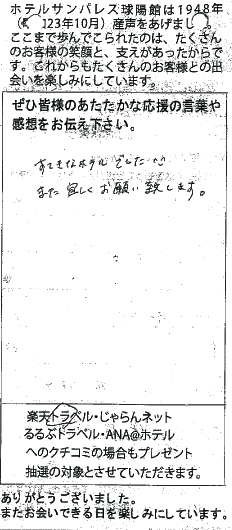 ホテルサンパレス球陽館は1948年
23年10月）産声をあげまし
ここまで歩んでこられたのは、たくさん
のお客様の笑顔と、支えがあったからで
す。これからもたくさんのお客様との出
会いを楽しみにしています。
ぜひ皆様のあたたかな応援の言葉や
感想をお伝え下さい。
すてきなホテルでした
また宜しくお願い致します。
楽天トラベル・じゃらんネット
るるぶトラベル・ANA@ホテル
へのクチコミの場合もプレゼント
抽選の対象とさせていただきます。
ありがとうございました。
またお会いできる日を楽しみにしています。